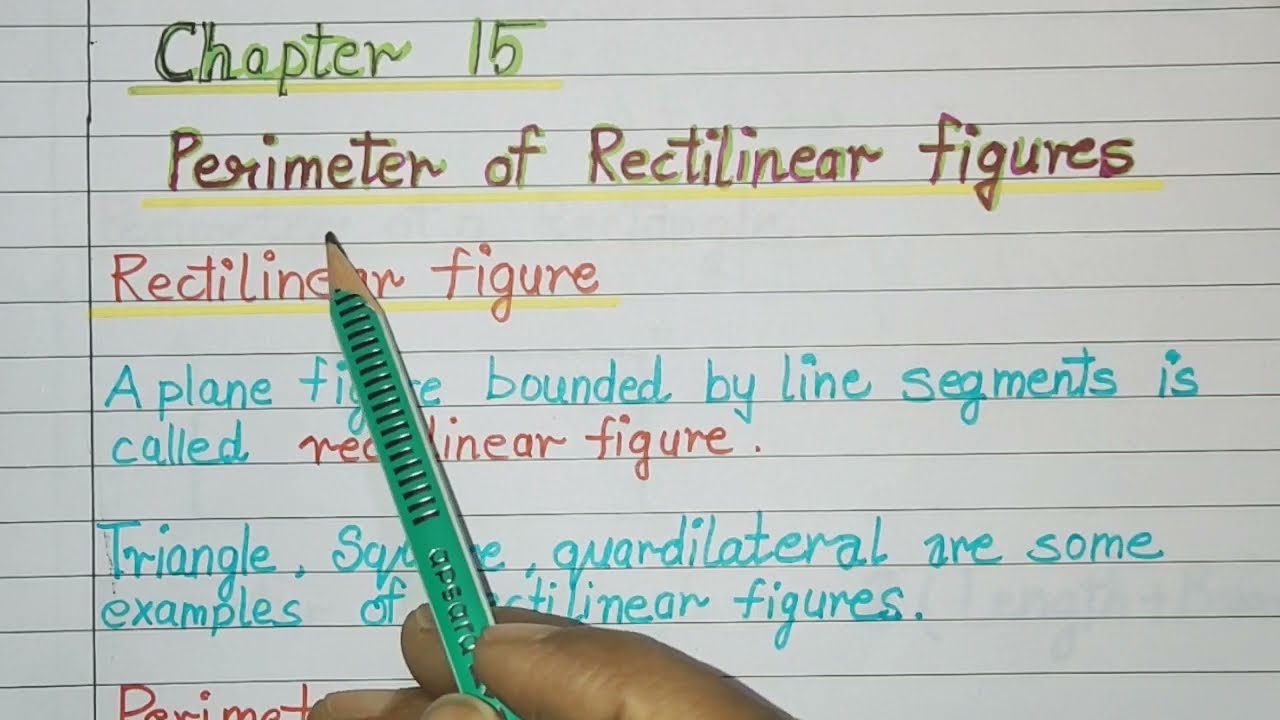 Chapter 15
Perimeter of Rectilinear figures
Rectilinear figure
A plane figure bounded by line segments is
called rectilinear figure.
Triangle, Square, quardilateral are some
examples of rectilinear figures.
apsara